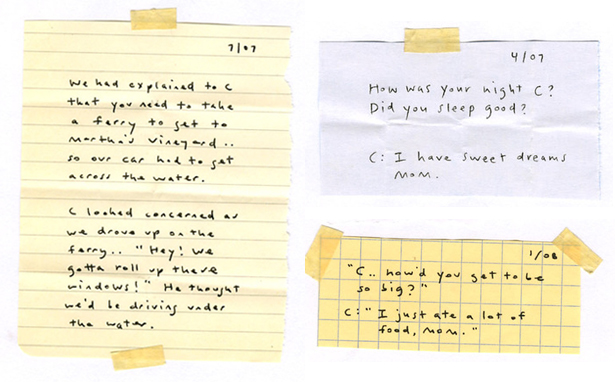 7/07
We had explained to C
that you need to take
a ferry to get to
Martha's Vineyard..
so our car had to get
across the water.
C looked concerned as
we drove up on the
ferry.. "Hey! We
gotta roll up these
windows!" He thought
we'd be driving under
the water.
4/07
How was your night C?
Did you sleep good?
C: I have sweet dreams
mom.
1/08
"C.. how'd you get to be
so big?"
C: "I just ate a lot of
food, mom."